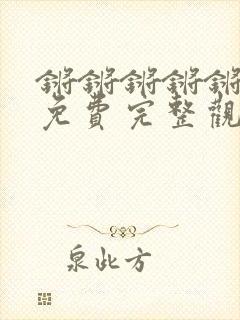 锵锵锵锵锵
免費完整觀
泉此方